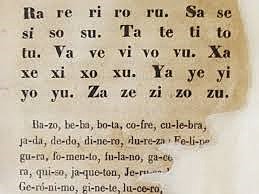 Ra re ri ro ru. Sa se
si so su. Ta te ti to
tu. Va ve vi vo vu. Xa
xe xi xo xu. Ya ye yi
yo yu. Za ze zi zo zu.
Ba-zo, be-ba, bo-ta, co-fre, cu-le-bra,
ja-da, de-do, di-ne-ro, du-re-za, Fe-li-pe
gu-ra, fo-men-to, fu-la-no, ga-ce
ra, qui-so, ja-que-ton, Je-ru
Ge-ró-ni-mo, gi-ne-te, lu-ce-ro,